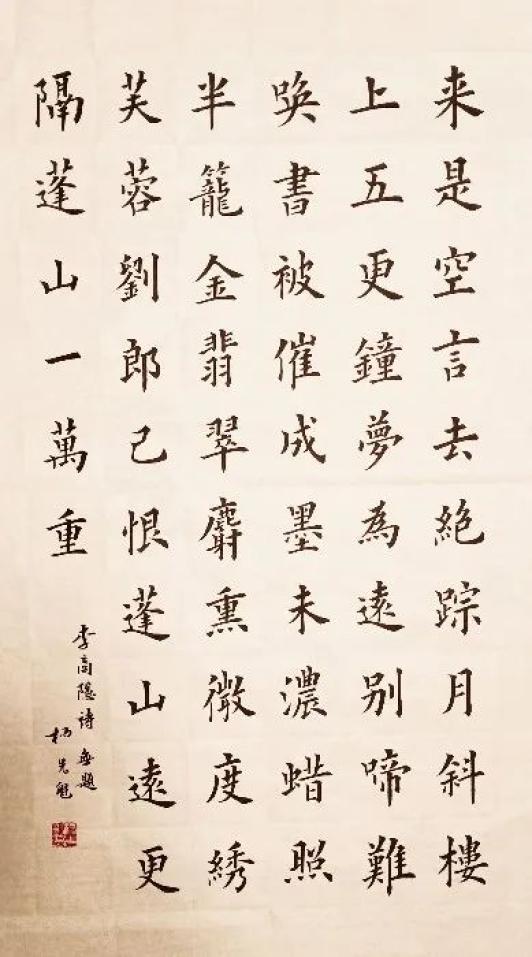 来是空言去絶踪月斜樓
上五更鐘夢為遠别啼難
唤書被催成墨未濃蜡照
半籠金翡翠麝熏微度綉
芙蓉劉郎已恨蓬山遠更
隔蓬山一萬重
李商隱詩無題